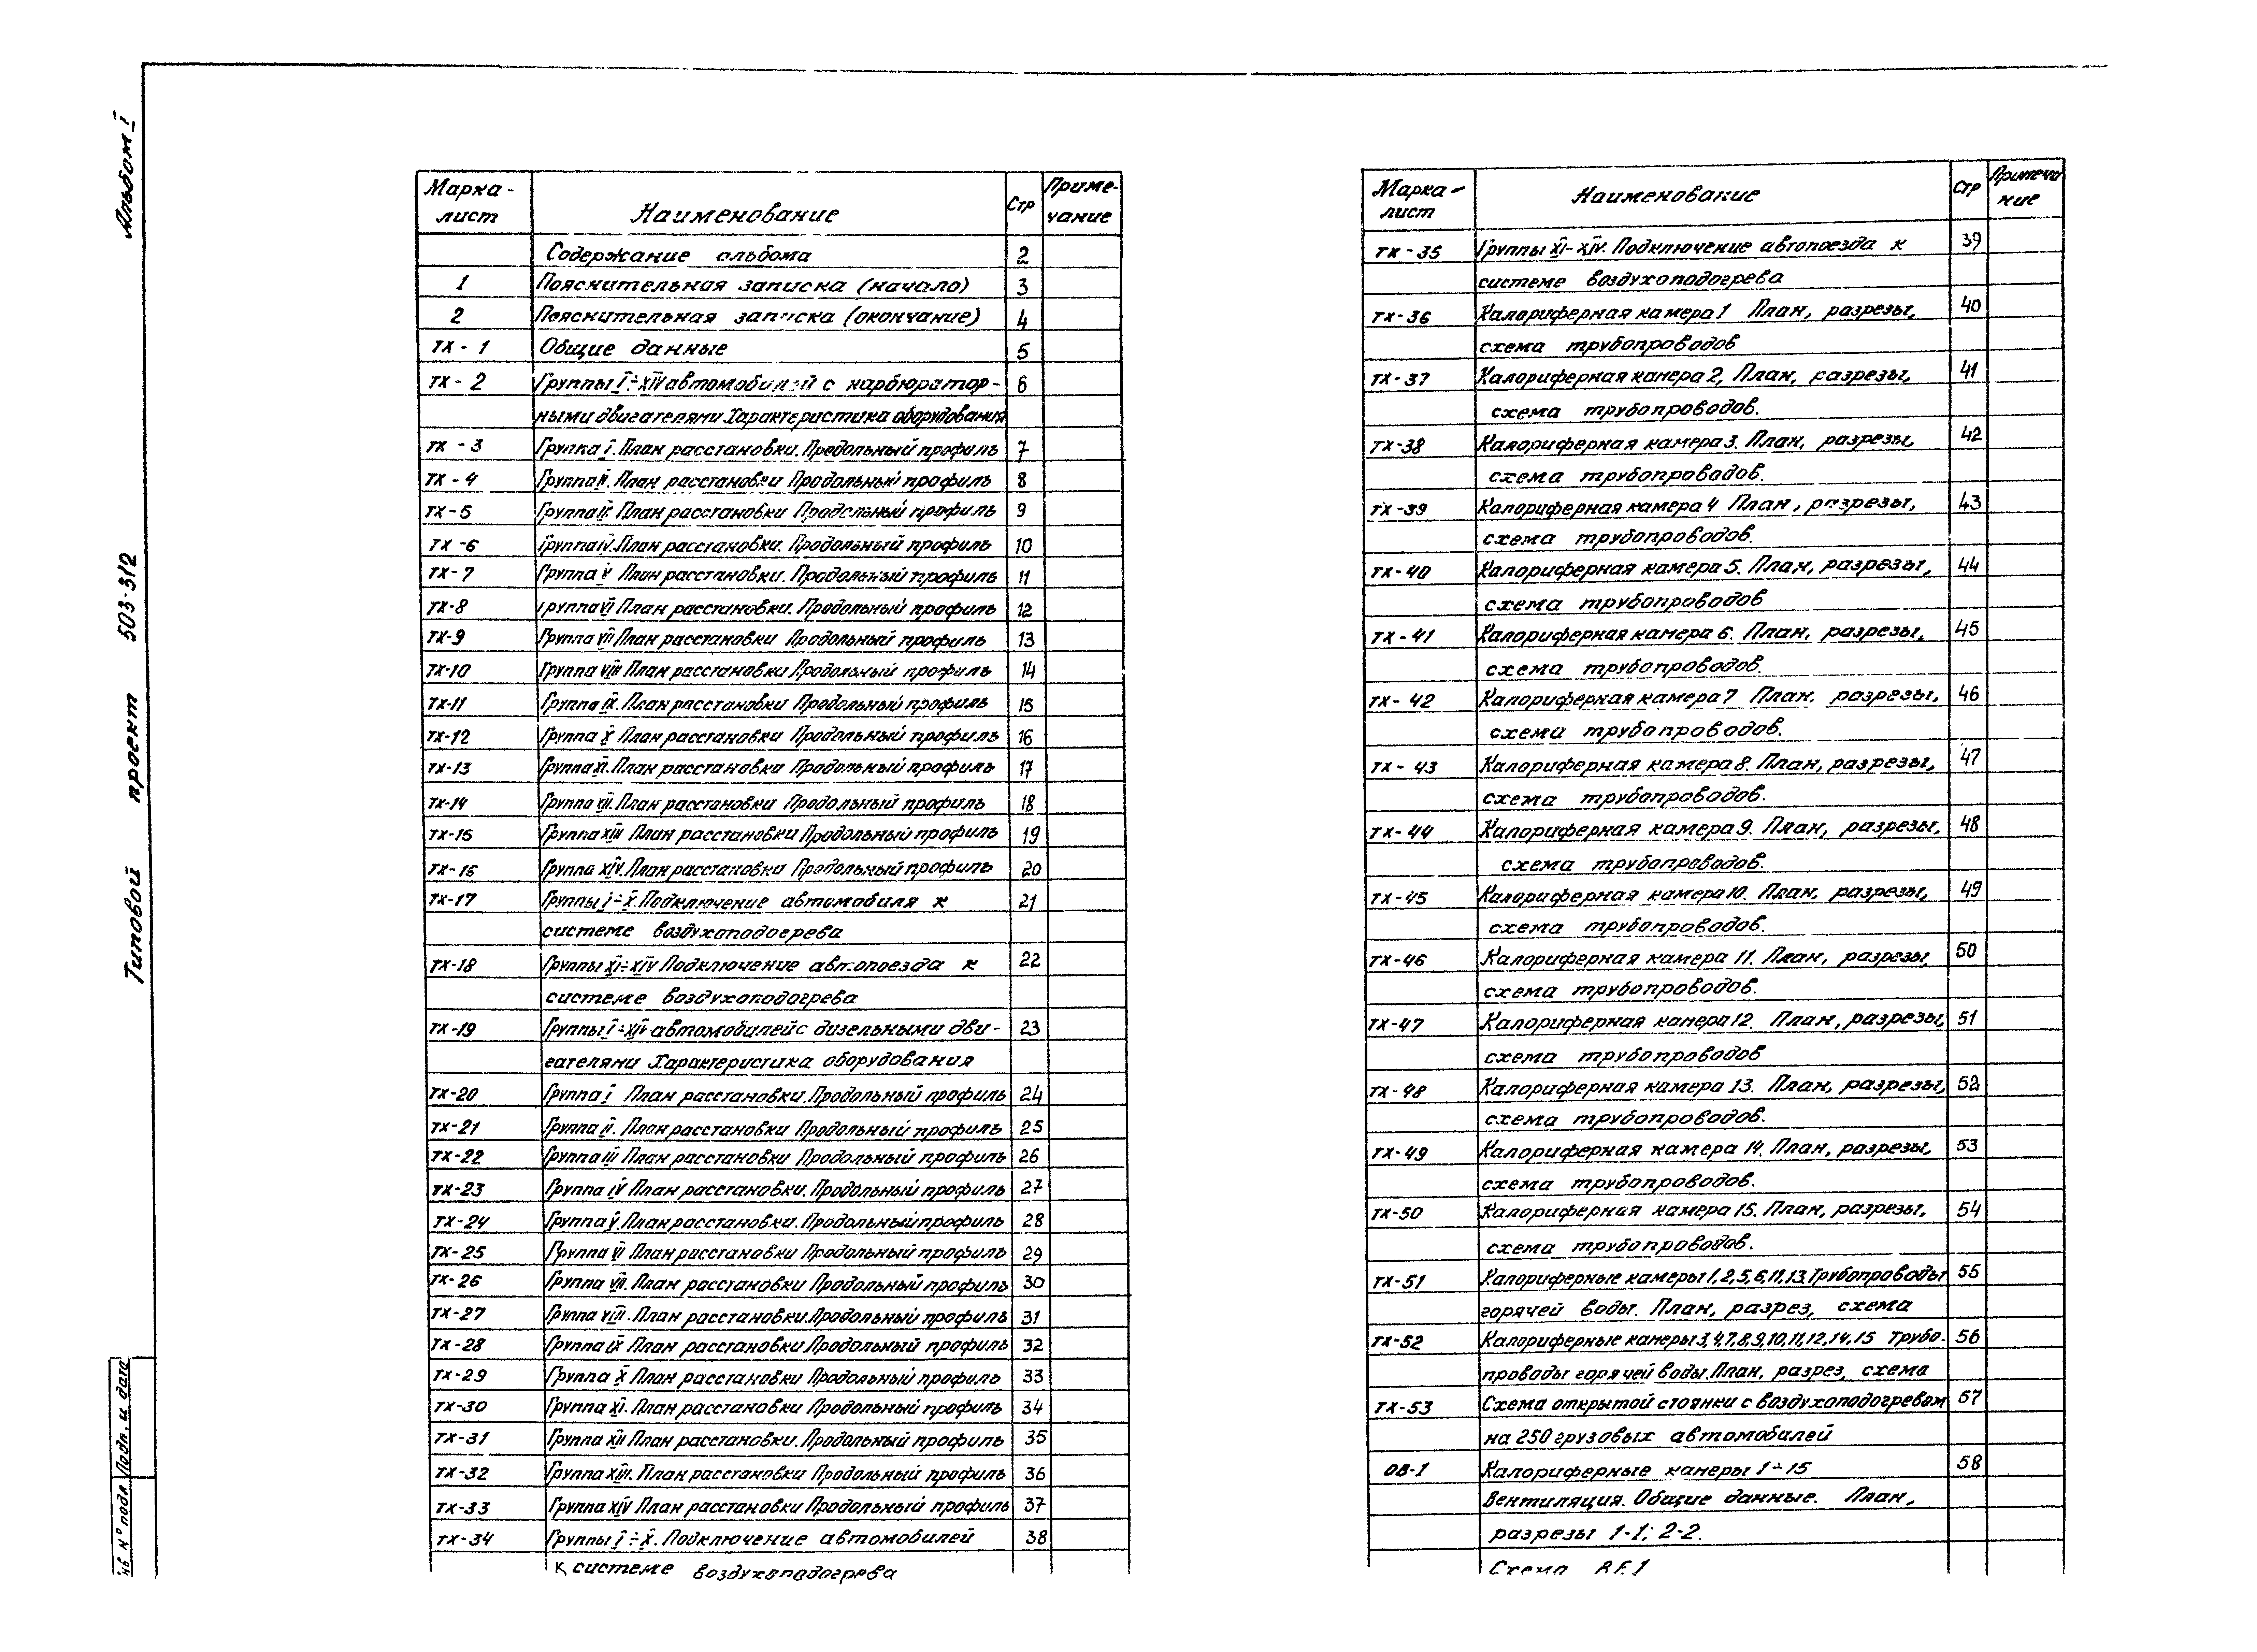 Альбом I
Типовой проект 503-312
Подп. и дата
№ подл
Марка-лист Наименование Стр Примечание
Содержание альбома 2
1 Пояснительная записка (начало) 3
2 Пояснительная записка (окончание) 4
ТХ-1 Общие данные 5
ТХ-2 Группы I÷XIV автомобилей с карбюратор- 6
ными двигателями Характеристика оборудования
ТХ-3 Группа I. План расстановки. Продольный профиль 7
ТХ-4 Группа II. План расстановки Продольный профиль 8
ТХ-5 Группа III План расстановки Продольный профиль 9
ТХ-6 Группа IV. План расстановки. Продольный профиль 10
ТХ-7 Группа V План расстановки. Продольный профиль 11
ТХ-8 Группа VI План расстановки. Продольный профиль 12
ТХ-9 Группа VII План расстановки Продольный профиль 13
ТХ-10 Группа VIII План расстановки Продольный профиль 14
ТХ-11 Группа IX. План расстановки Продольный профиль 15
ТХ-12 Группа X План расстановки Продольный профиль 16
ТХ-13 Группа XI. План расстановки Продольный профиль 17
ТХ-14 Группа XII. План расстановки Продольный профиль 18
ТХ-15 Группа XIII План расстановки Продольный профиль 19
ТХ-16 Группа XIV. План расстановки Продольный профиль 20
ТХ-17 Группы I÷X. Подключение автомобиля к 21
системе воздухоподогрева
ТХ-18 Группы XI÷XIV Подключение автопоезда к 22
системе воздухоподогрева
ТХ-19 Группы I÷XIV автомобилей с дизельными дви- 23
гателями Характеристика оборудования
ТХ-20 Группа I План расстановки. Продольный профиль 24
ТХ-21 Группа II. План расстановки Продольный профиль 25
ТХ-22 Группа III План расстановки Продольный профиль 26
ТХ-23 Группа IV План расстановки. Продольный профиль 27
ТХ-24 Группа V. План расстановки. Продольный профиль 28
ТХ-25 Группа VI План расстановки Продольный профиль 29
ТХ-26 Группа VII. План расстановки Продольный профиль 30
ТХ-27 Группа VIII. План расстановки. Продольный профиль 31
ТХ-28 Группа IX План расстановки Продольный профиль 32
ТХ-29 Группа X План расстановки Продольный профиль 33
ТХ-30 Группа XI. План расстановки Продольный профиль 34
ТХ-31 Группа XII План расстановки. Продольный профиль 35
ТХ-32 Группа XIII. План расстановки Продольный профиль 36
ТХ-33 Группа XIV План расстановки Продольный профиль 37
ТХ-34 Группы I÷X. Подключение автомобилей 38
к системе воздухоподогрева
Марка-лист Наименование Стр Примечание
ТХ-35 Группы XI-XIV. Подключение автопоезда к 39
системе воздухоподогрева
ТХ-36 Калориферная камера 1 План, разрезы, 40
схема трубопроводов
ТХ-37 Калориферная камера 2, План, разрезы, 41
схема трубопроводов.
ТХ-38 Калориферная камера 3. План, разрезы, 42
схема трубопроводов.
ТХ-39 Калориферная камера 4 План, разрезы, 43
схема трубопроводов.
ТХ-40 Калориферная камера 5. План, разрезы, 44
схема трубопроводов
ТХ-41 Калориферная камера 6. План, разрезы, 45
схема трубопроводов.
ТХ-42 Калориферная камера 7 План, разрезы, 46
схема трубопроводов.
ТХ-43 Калориферная камера 8. План, разрезы, 47
схема трубопроводов.
ТХ-44 Калориферная камера 9. План, разрезы, 48
схема трубопроводов.
ТХ-45 Калориферная камера 10. План, разрезы, 49
схема трубопроводов.
ТХ-46 Калориферная камера 11. План, разрезы, 50
схема трубопроводов.
ТХ-47 Калориферная камера 12. План, разрезы, 51
схема трубопроводов
ТХ-48 Калориферная камера 13. План, разрезы, 52
схема трубопроводов.
ТХ-49 Калориферная камера 14. План, разрезы, 53
схема трубопроводов.
ТХ-50 Калориферная камера 15. План, разрезы, 54
схема трубопроводов.
ТХ-51 Калориферные камеры 1,2,5,6,11,13. Трубопроводы 55
горячей воды. План, разрез, схема
ТХ-52 Калориферные камеры 3,4,7,8,9,10,11,12,14,15 Трубо- 56
проводы горячей воды. План, разрез, схема
ТХ-53 Схема открытой стоянки с воздухоподогревом 57
на 250 грузовых автомобилей
ОВ-1 Калориферные камеры 1÷15 58
Вентиляция. Общие данные. План,
разрезы 1-1; 2-2.
Схема ВЕ1